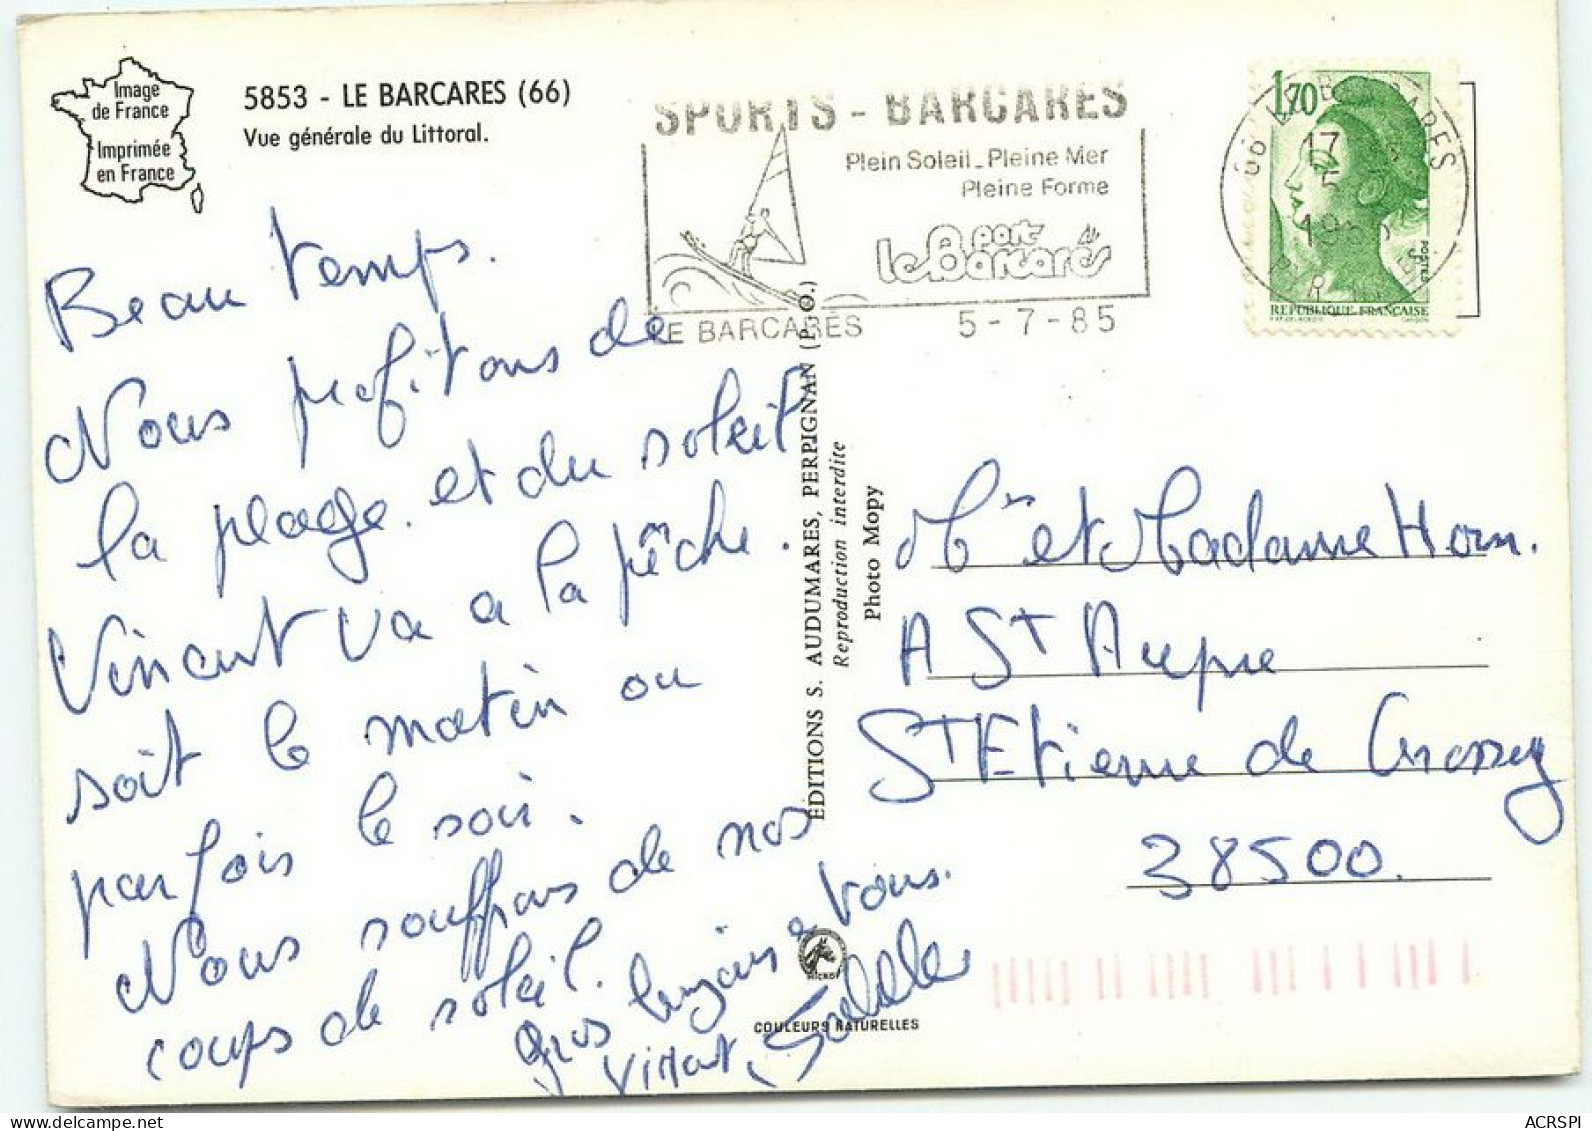 Image
de France
Imprimée
en France
5853 - LE BARCARES (66)
Vue générale du Littoral.
SPORTS - BARCARES
Plein Soleil_Pleine Mer
Pleine Forme
port
le Barcarès
LE BARCARES 5-7-85
1,70
66 LE BARCARES
17
5
POSTES
REPUBLIQUE FRANÇAISE
Beau temps.
Nous profitons de
la plage et du soleil
Vincent va a la pêche.
soit le matin ou
parfois le soir.
Nous souffrons de nos
coups de soleil.
gros à vous.
EDITIONS S. AUDUMARES, PERPIGNAN (P.O.)
Reproduction interdite
Photo Mopy
Mr et Madame Horn.
A St Aupre
St Etienne de Crossey
38500.
COULEURS NATURELLES
ACRSPI